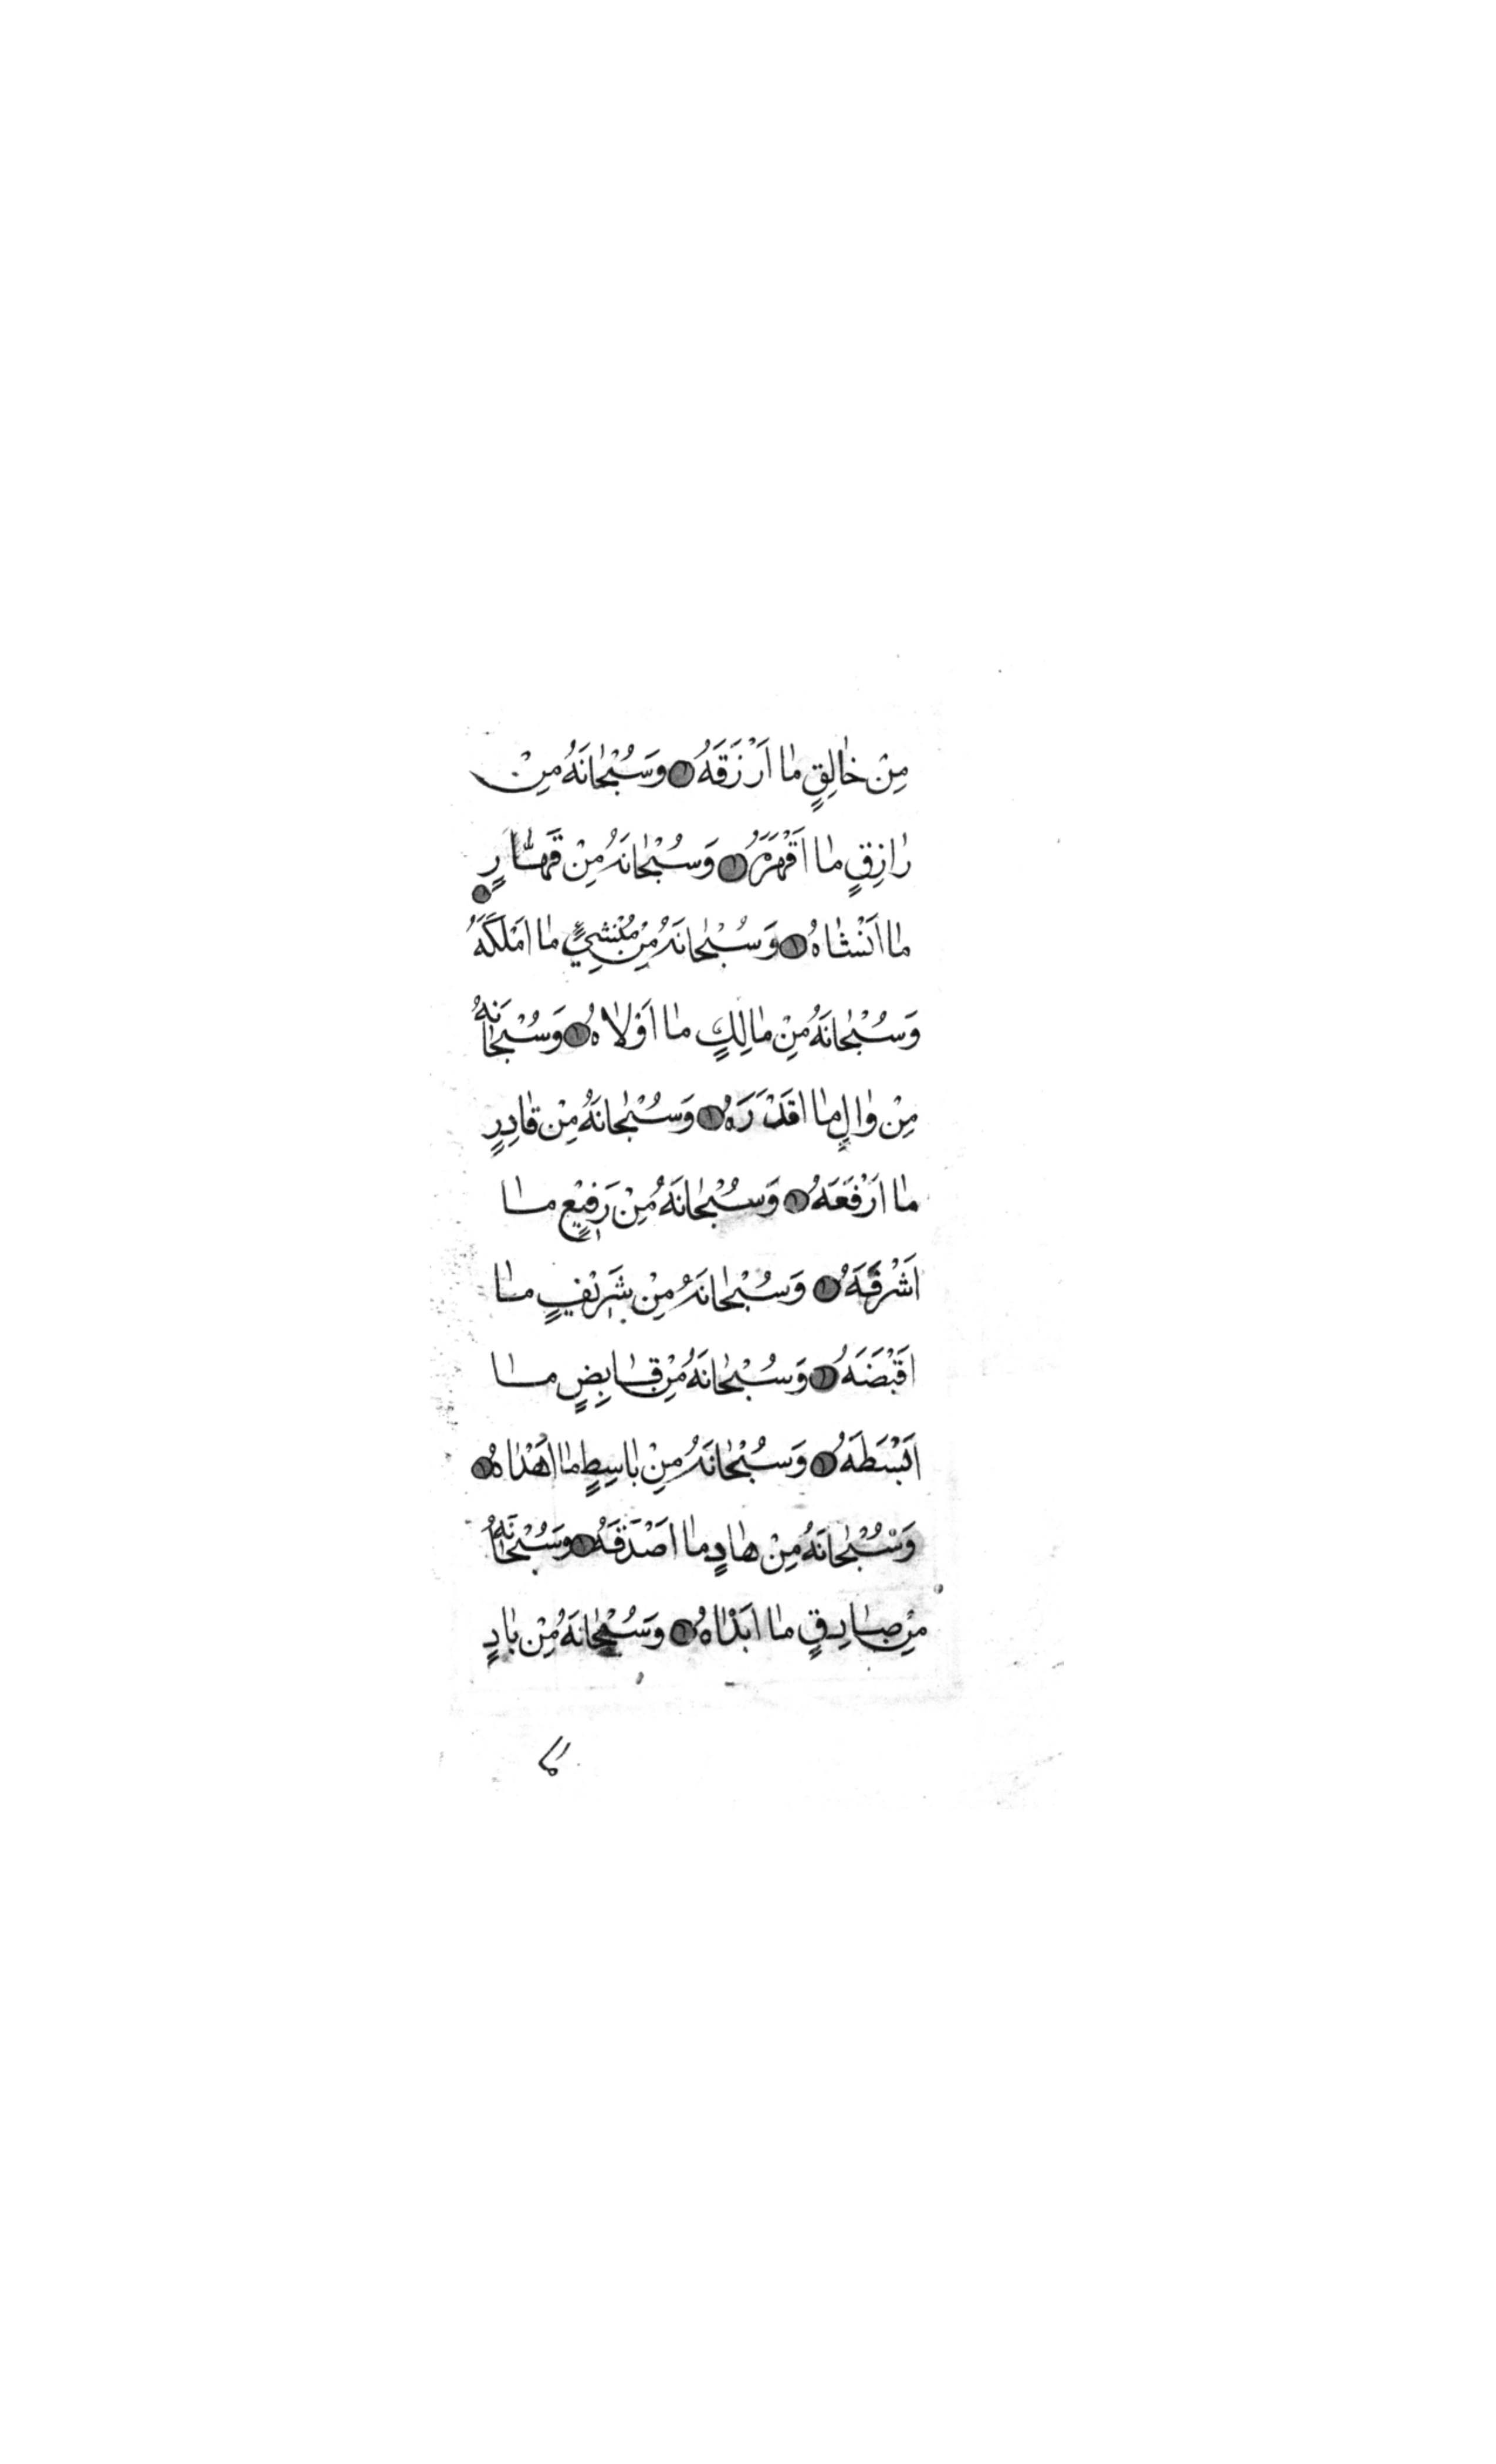 مِنْ خٰالِقٍ مٰا اَرْزَقَهُ وَسُبْحٰانَهُ مِنْ
رٰازِقٍ مٰا اَقْهَرَهُ وَسُبْحٰانَهُ مِنْ قَهّٰارٍ
مٰا اَنْشٰاهُ وَسُبْحٰانَهُ مِنْ مُنْشِيءٍ مٰا اَمْلَكَهُ
وَسُبْحٰانَهُ مِنْ مٰالِكٍ مٰا اَوْلاٰهُ وَسُبْحٰانَهُ
مِنْ وٰالٍ مٰا اَقْدَرَهُ وَسُبْحٰانَهُ مِنْ قٰادِرٍ
مٰا اَرْفَعَهُ وَسُبْحٰانَهُ مِنْ رَفِيْعٍ مٰا
اَشْرَفَهُ وَسُبْحٰانَهُ مِنْ شَرِيْفٍ مٰا
اَقْبَضَهُ وَسُبْحٰانَهُ مِنْ قٰابِضٍ مٰا
اَبْسَطَهُ وَسُبْحٰانَهُ مِنْ بٰاسِطٍ مٰا اَهْدٰاهُ
وَسُبْحٰانَهُ مِنْ هٰادٍ مٰا اَصْدَقَهُ وَسُبْحٰانَهُ
مِنْ صٰادِقٍ مٰا اَبَدْاٰهُ وَسُبْحٰانَهُ مِنْ بٰادٍ